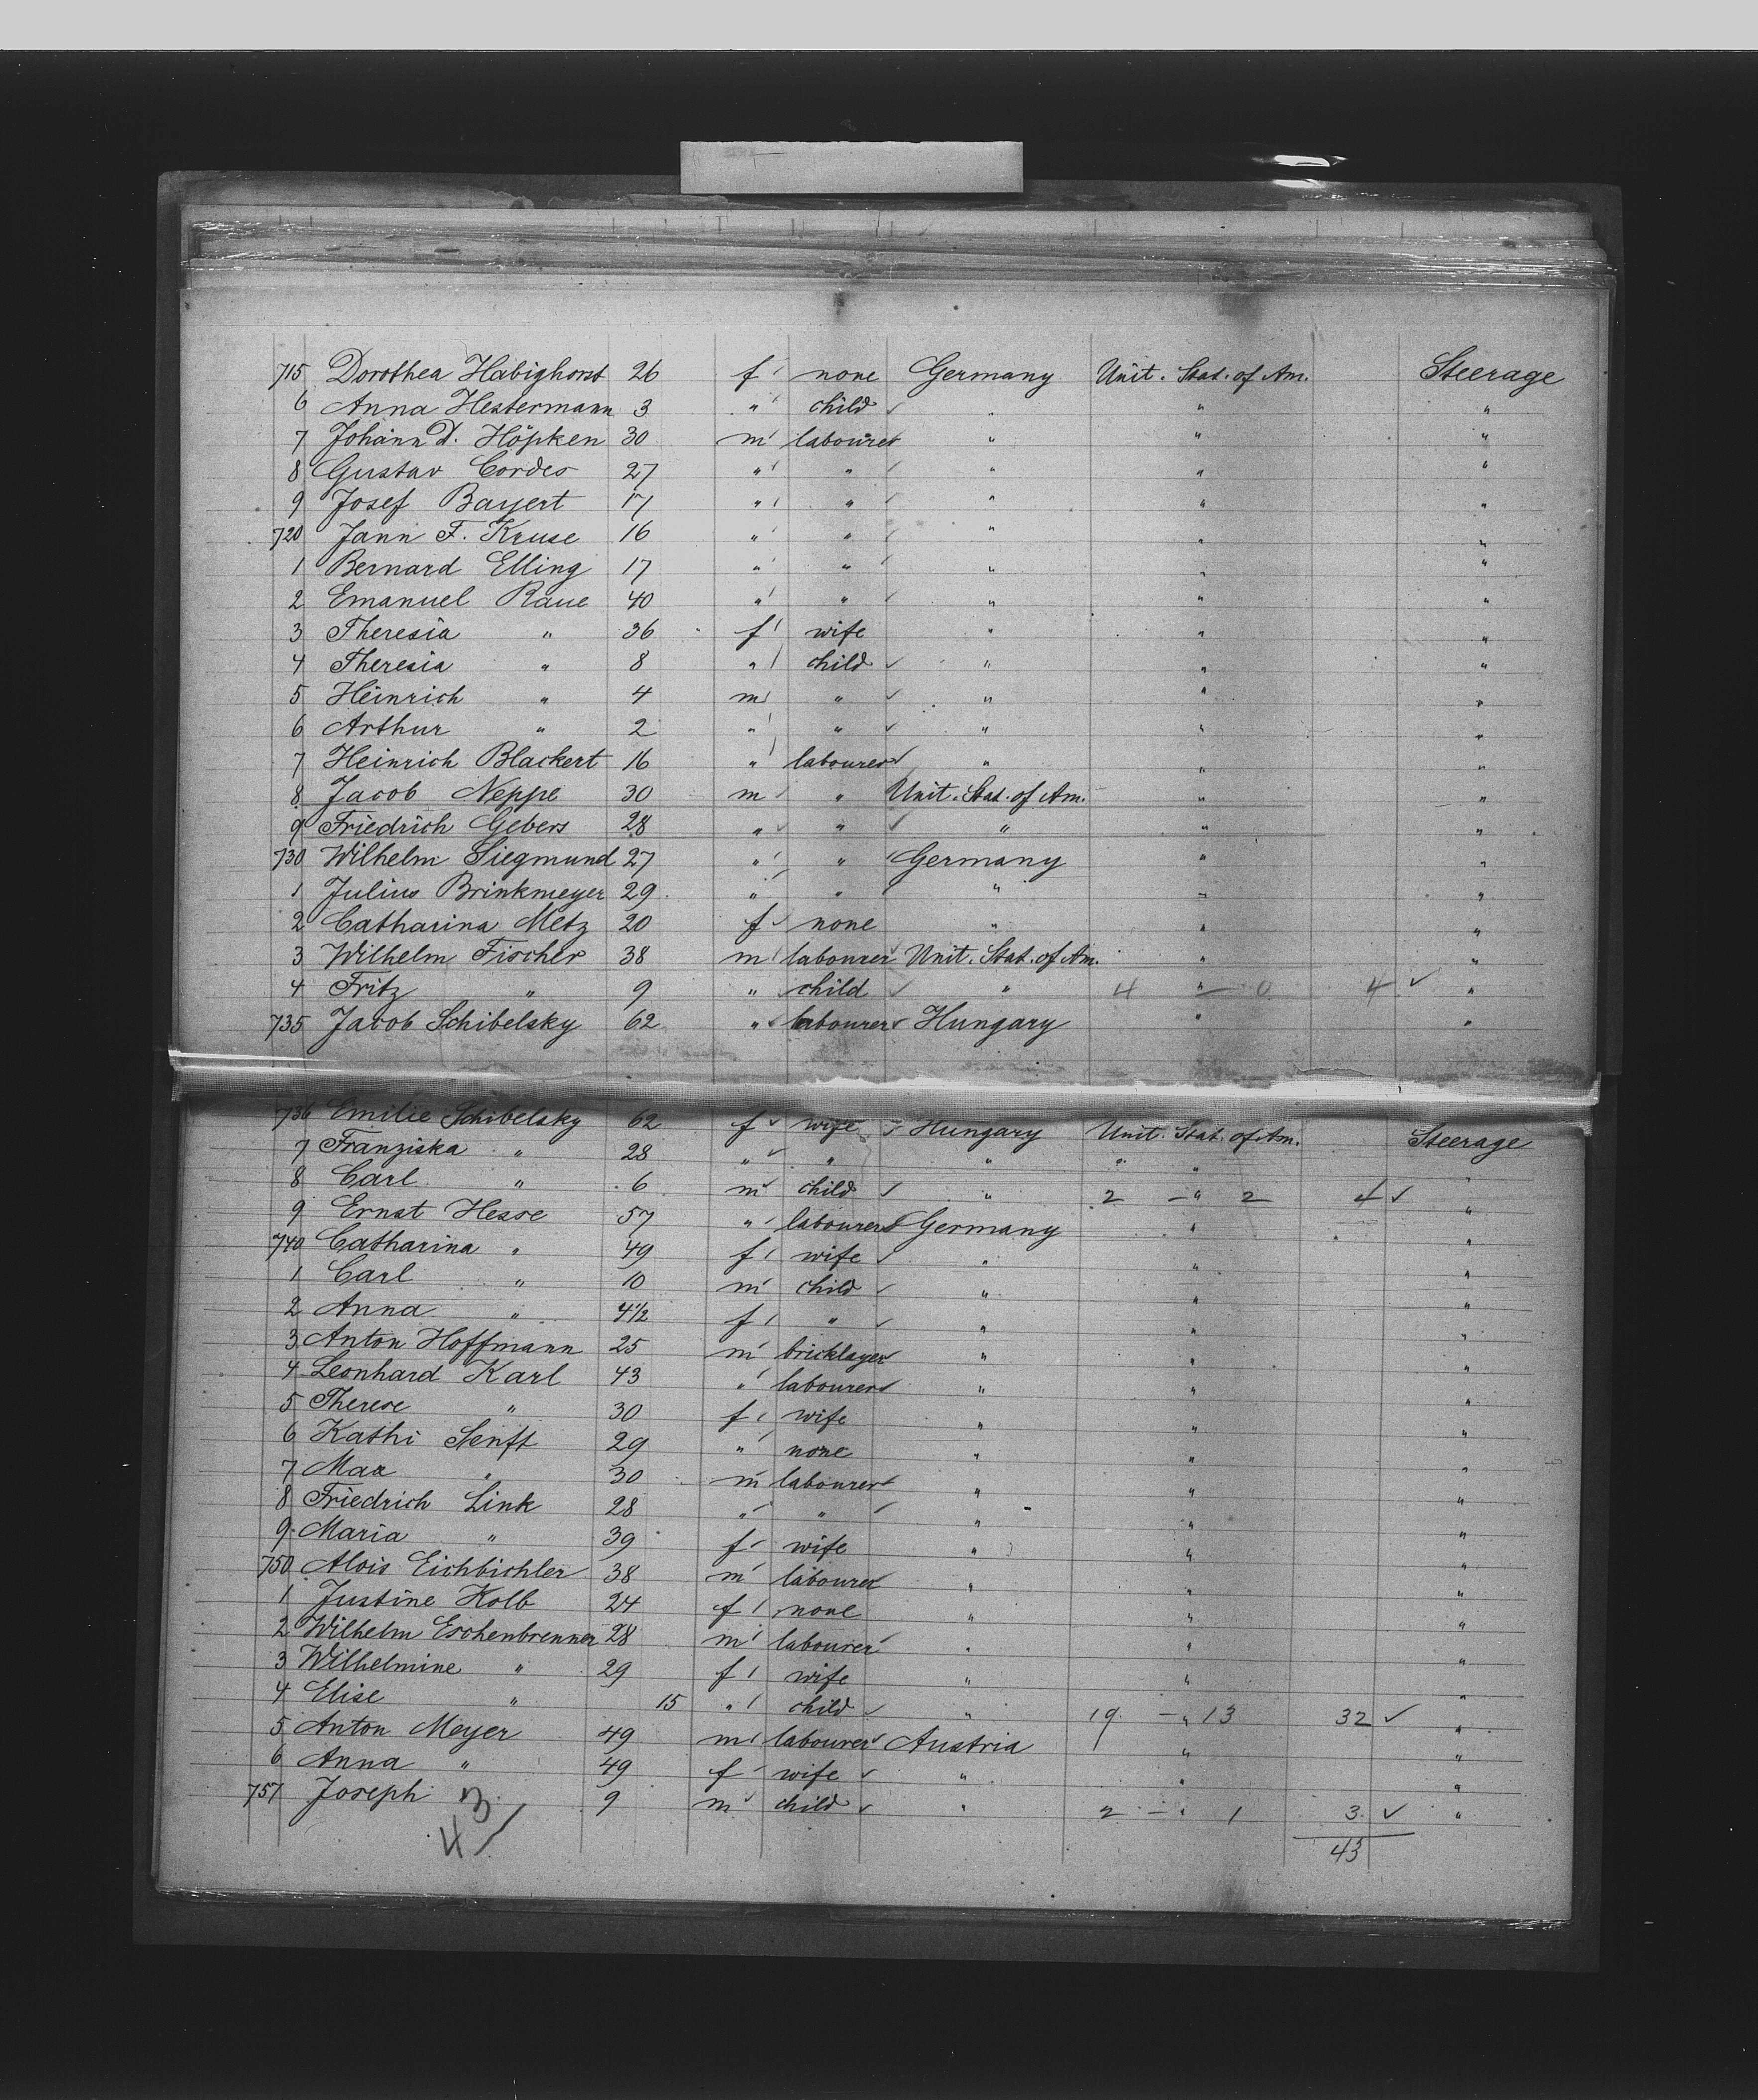 715 Dorothea Habighorst 26 f none Germany Unit. Stat. of Am. Steerage
6 Anna Hestermann 3 " child " " "
7 Johann D. Höpken 30 m labourer " " "
8 Gustav Cordes 27 " " " " "
9 Josef Bayert 17 " " " " "
720 Jann F. Kruse 16 " " " " "
1 Bernard Elling 17 " " " " "
2 Emanuel Raue 40 " " " " "
3 Theresia " 36 f wife " " "
4 Theresia " 8 " child " " "
5 Heinrich " 4 m " " " "
6 Arthur " 2 " " " " "
7 Heinrich Blackert 16 " labourer " " "
8 Jacob Neppe 30 m " Unit. Stat. of Am. " "
9 Friedrich Gebers 28 " " " " "
730 Wilhelm Siegmund 27 " " Germany " "
1 Julius Brinkmeyer 29 " " " " "
2 Catharina Metz 20 f none " " "
3 Wilhelm Fischer 38 m labourer Unit. Stat. of Am. " "
4 Fritz " 9 " child " 4 " — 0 4 ✓ "
735 Jacob Schibelsky 62 " labourer Hungary " "
736 Emilie Schibelsky 62 f wife Hungary Unit. Stat. of Am. Steerage
7 Franziska " 28 " " " " " "
8 Carl " 6 m child " 2 — " 2 4 ✓ "
9 Ernst Hesse 57 " labourer Germany " "
740 Catharina " 49 f wife " " "
1 Carl " 10 m child " " "
2 Anna " 4 1/2 f " " " "
3 Anton Hoffmann 25 m bricklayer " " "
4 Leonhard Karl 43 " labourer " " "
5 Therese " 30 f wife " " "
6 Kathi Senft 29 " none " " "
7 Max " 30 m labourer " " "
8 Friedrich Link 28 " " " " "
9 Maria " 39 f wife " " "
750 Alois Eichbichler 38 m labourer " " "
1 Justine Kolb 24 f none " " "
2 Wilhelm Eschenbrenner 28 m labourer " " "
3 Wilhelmine " 29 f wife " " "
4 Elise " 15 " child " 19 — " 13 32 ✓ "
5 Anton Meyer 49 m labourer Austria " "
6 Anna " 49 f wife " " "
757 Joseph 9 m child " 2 — " 1 3 ✓ "
43 43